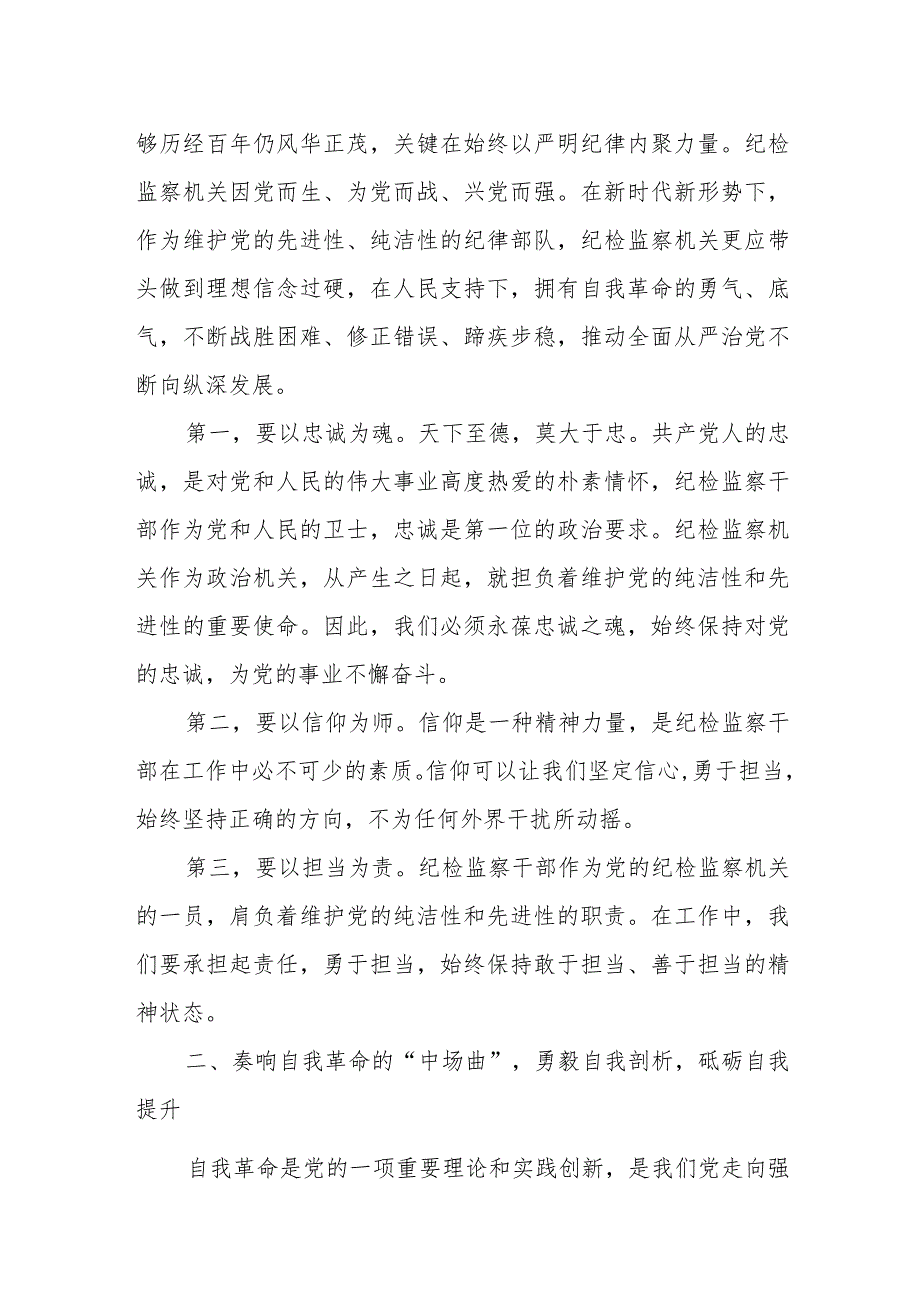 够历经百年仍风华正茂，关键在始终以严明纪律内聚力量。纪检
监察机关因党而生、为党而战、兴党而强。在新时代新形势下，
作为维护党的先进性、纯洁性的纪律部队，纪检监察机关更应带
头做到理想信念过硬，在人民支持下，拥有自我革命的勇气、底
气，不断战胜困难、修正错误、蹄疾步稳，推动全面从严治党不
断向纵深发展。
第一，要以忠诚为魂。天下至德，莫大于忠。共产党人的忠
诚，是对党和人民的伟大事业高度热爱的朴素情怀，纪检监察干
部作为党和人民的卫士，忠诚是第一位的政治要求。纪检监察机
关作为政治机关，从产生之日起，就担负着维护党的纯洁性和先
进性的重要使命。因此，我们必须永葆忠诚之魂，始终保持对党
的忠诚，为党的事业不懈奋斗。
第二，要以信仰为师。信仰是一种精神力量，是纪检监察干
部在工作中必不可少的素质。信仰可以让我们坚定信心,勇于担当，
始终坚持正确的方向，不为任何外界干扰所动摇。
第三，要以担当为责。纪检监察干部作为党的纪检监察机关
的一员，肩负着维护党的纯洁性和先进性的职责。在工作中，我
们要承担起责任，勇于担当，始终保持敢于担当、善于担当的精
神状态。
二、奏响自我革命的“中场曲”，勇毅自我剖析，砥砺自我
提升
自我革命是党的一项重要理论和实践创新，是我们党走向强